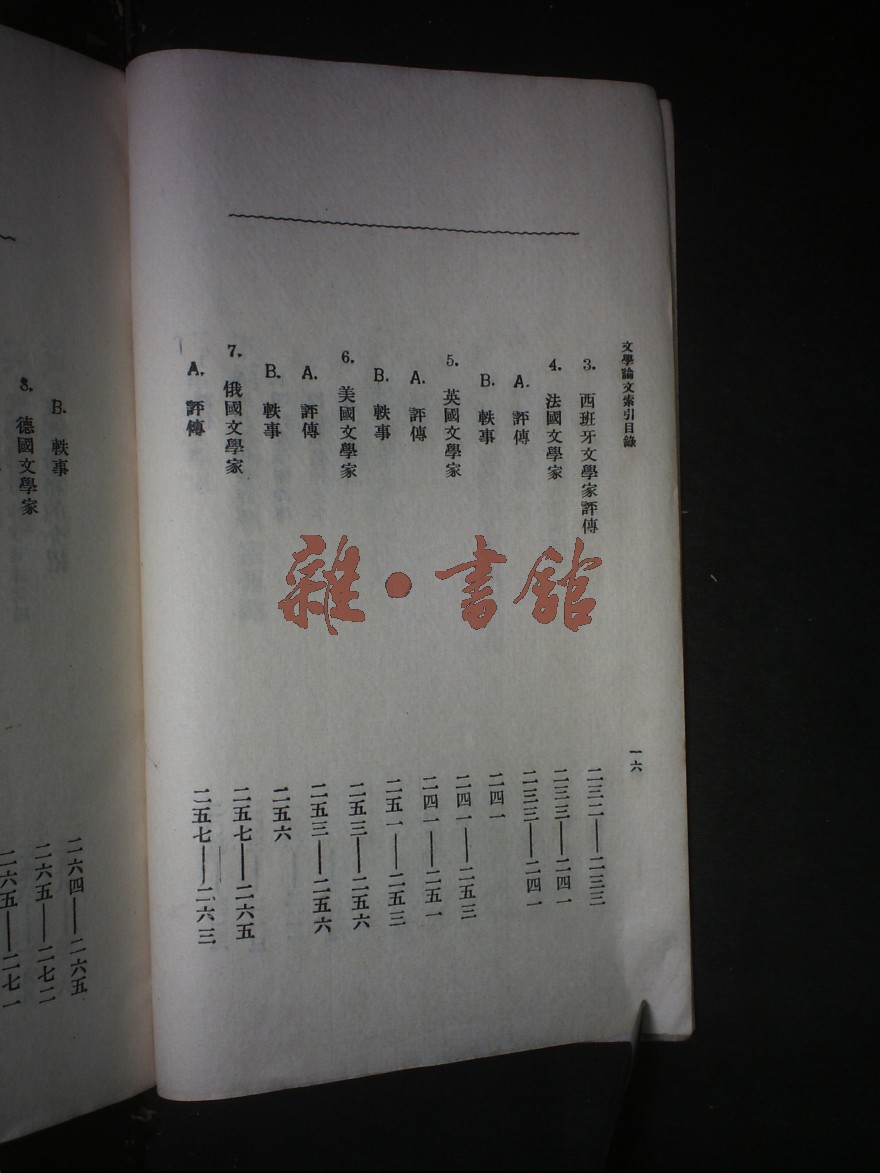 文學論文索引目錄
一六
3. 西班牙文學家評傳 二三二——二三三
4. 法國文學家 二三三——二四一
A. 評傳 二三三——二四一
B. 軼事 二四一
5. 英國文學家 二四一——二五三
A. 評傳 二四一——二五一
B. 軼事 二五一——二五三
6. 美國文學家 二五三——二五六
A. 評傳 二五三——二五六
B. 軼事 二五六
7. 俄國文學家 二五七——二六五
A. 評傳 二五七——二六三
B. 軼事 二六四——二六五
8. 德國文學家 二六五——二七二
二六五——二七一
雜·書館